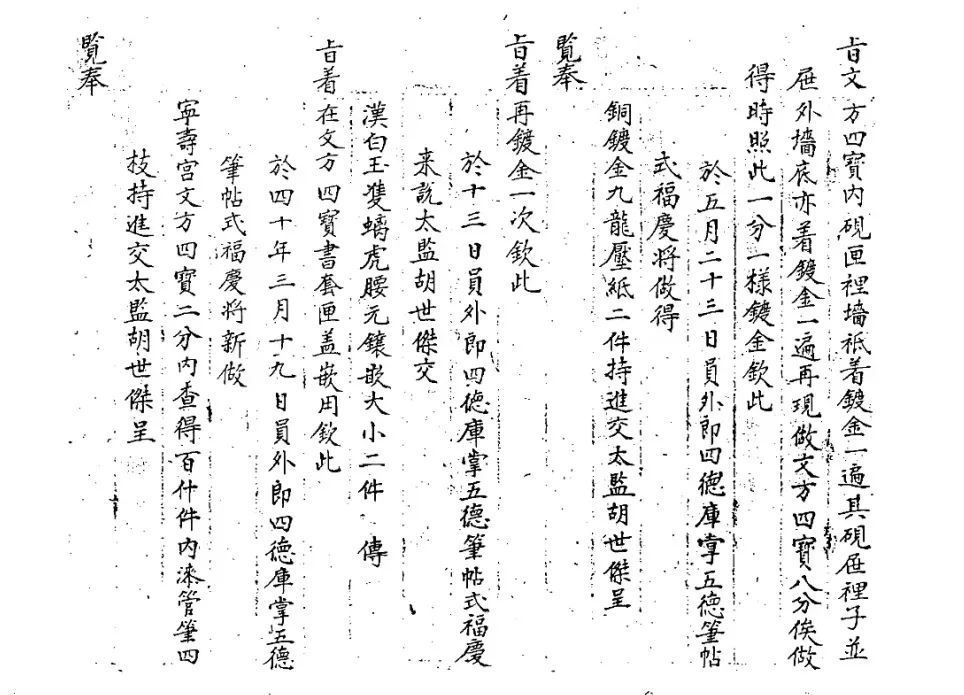 旨文方四寳内硯匣裡墙祇着鍍金一遍其硯屉裡子並
屉外墻底亦着鍍金一遍再現做文方四寳八分俟做
得時照此一分一樣鍍金欽此
於五月二十三日員外郎四德庫掌五德筆帖
式福慶將做得
銅鍍金九龍壓紙二件持進交太監胡世傑呈
覽奉
旨着再鍍金一次欽此
於十三日員外郎四德庫掌五德筆帖式福慶
来説太監胡世傑交
漢白玉雙螭虎腰元鑲嵌大小二件 傳
旨着在文方四寳書套匣盖嵌用欽此
於四十年三月十九日員外郎四德庫掌五德
筆帖式福慶將新做
寧壽宫文方四寳二分内查得百什件内漆管筆四
枝持進交太監胡世傑呈
覽奉